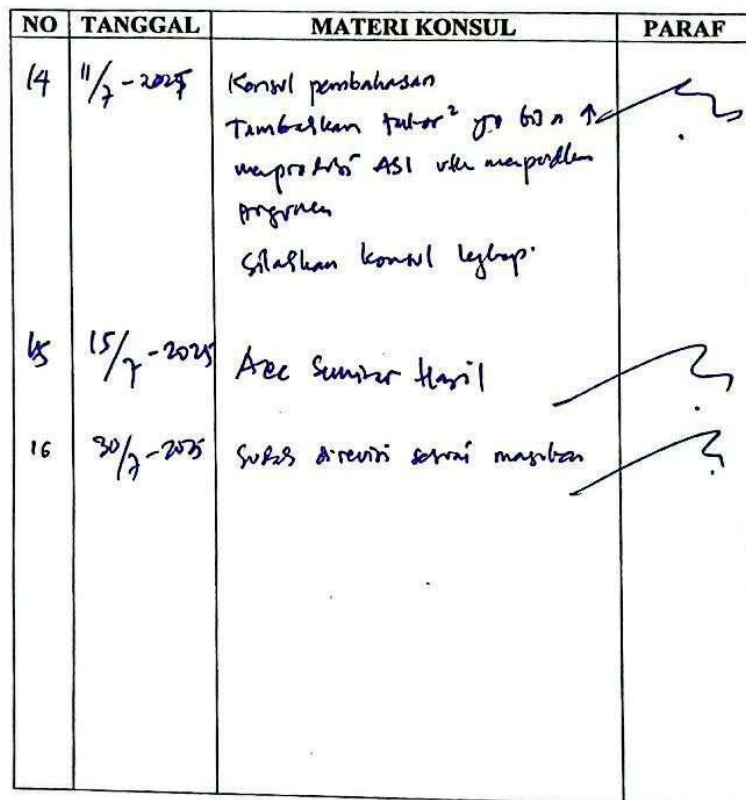 NO TANGGAL MATERI KONSUL PARAF
14 11/7-2025 Konsul pembahasan
Tambahkan faktor² yg ↑
memproduksi ASI utk
Silahkan konsul lengkap.
15 15/7-2025 Acc Seminar Hasil
16 30/7-2025 Sudah direvisi sesuai masukan